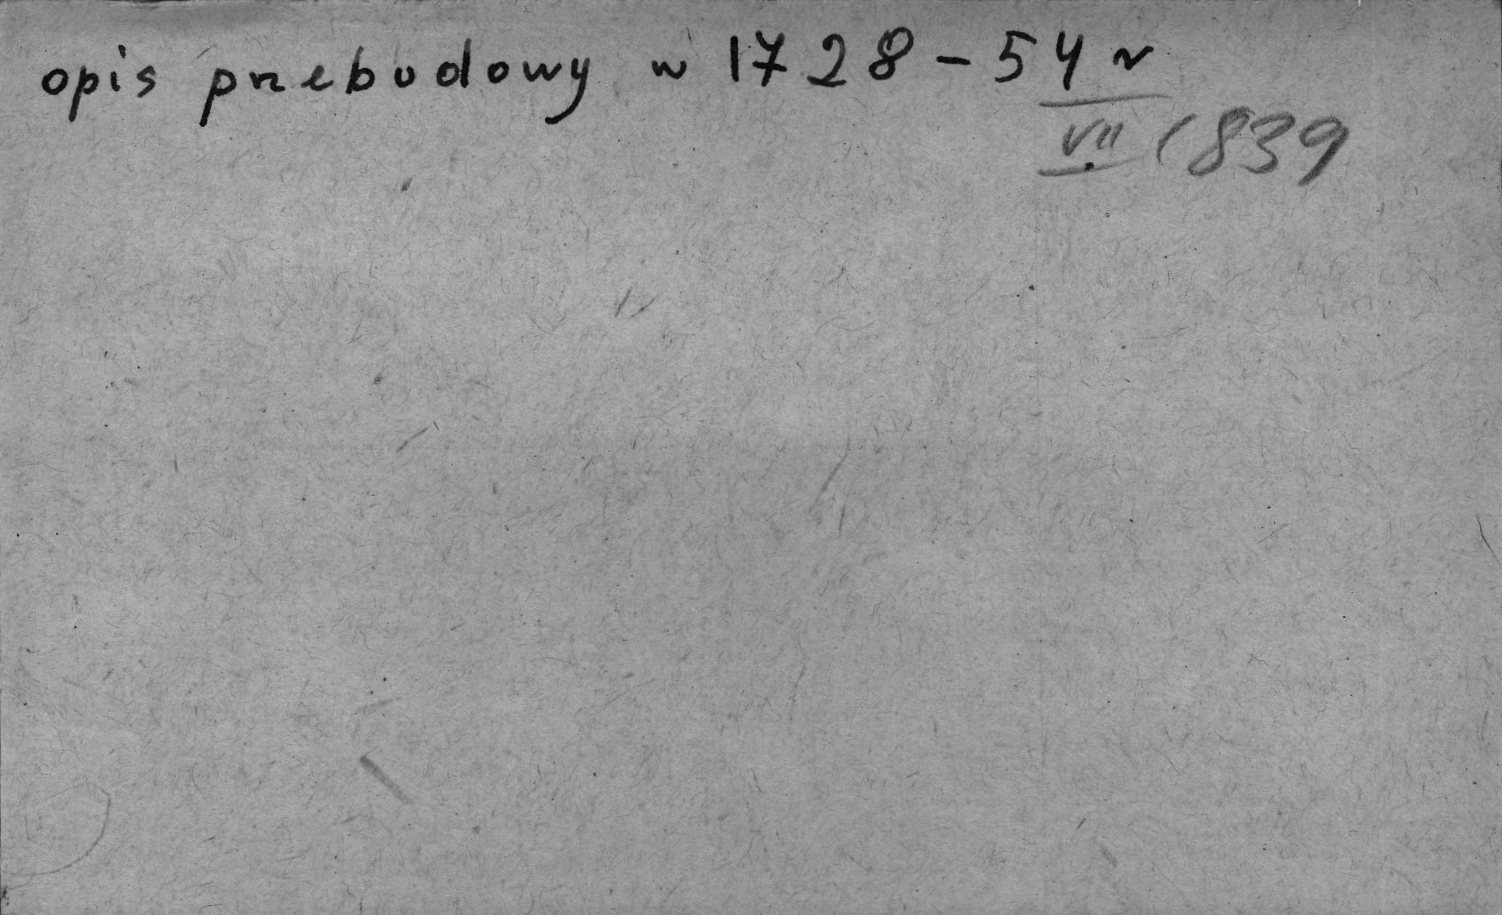 opis przebudowy w 1728-54 r
VII 1839